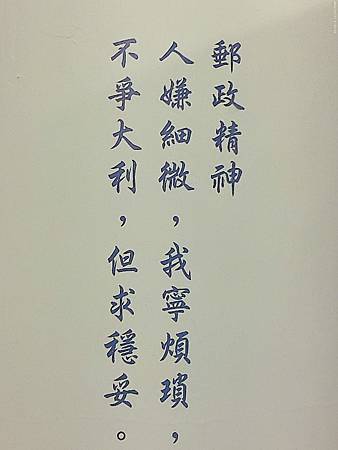 郵政精神
人嫌細微，我寧煩瑣，
不爭大利，但求穩妥。